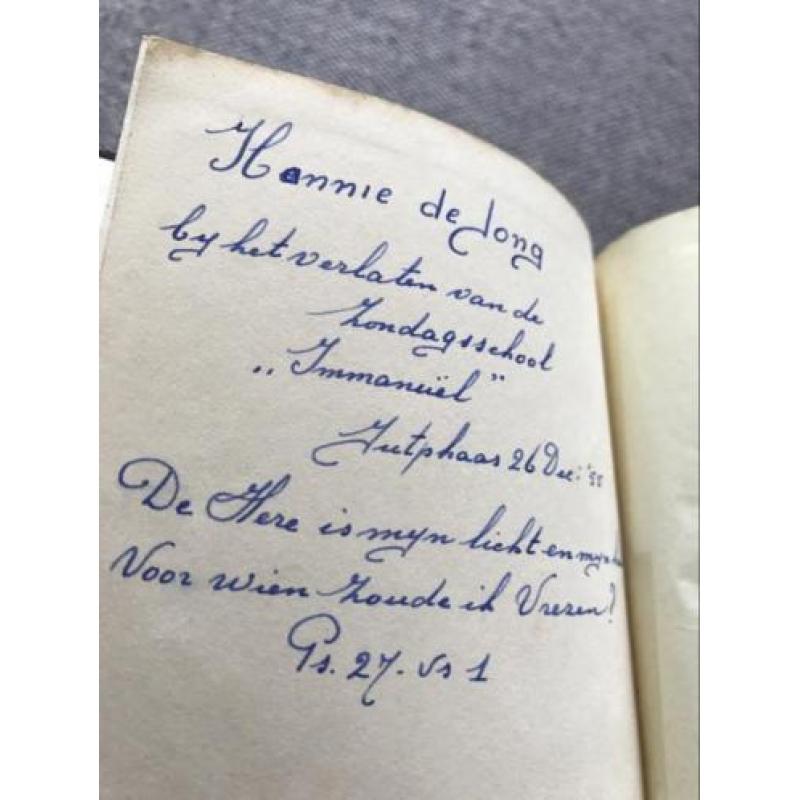 Hannie de Jong
by het verlaten van de
Zondagsschool
„Immanuël"
Jutphaas 26 Dec. '55
De Here is myn licht en myn
Voor wien zoude ik Vrezen?
Ps. 27. vs 1